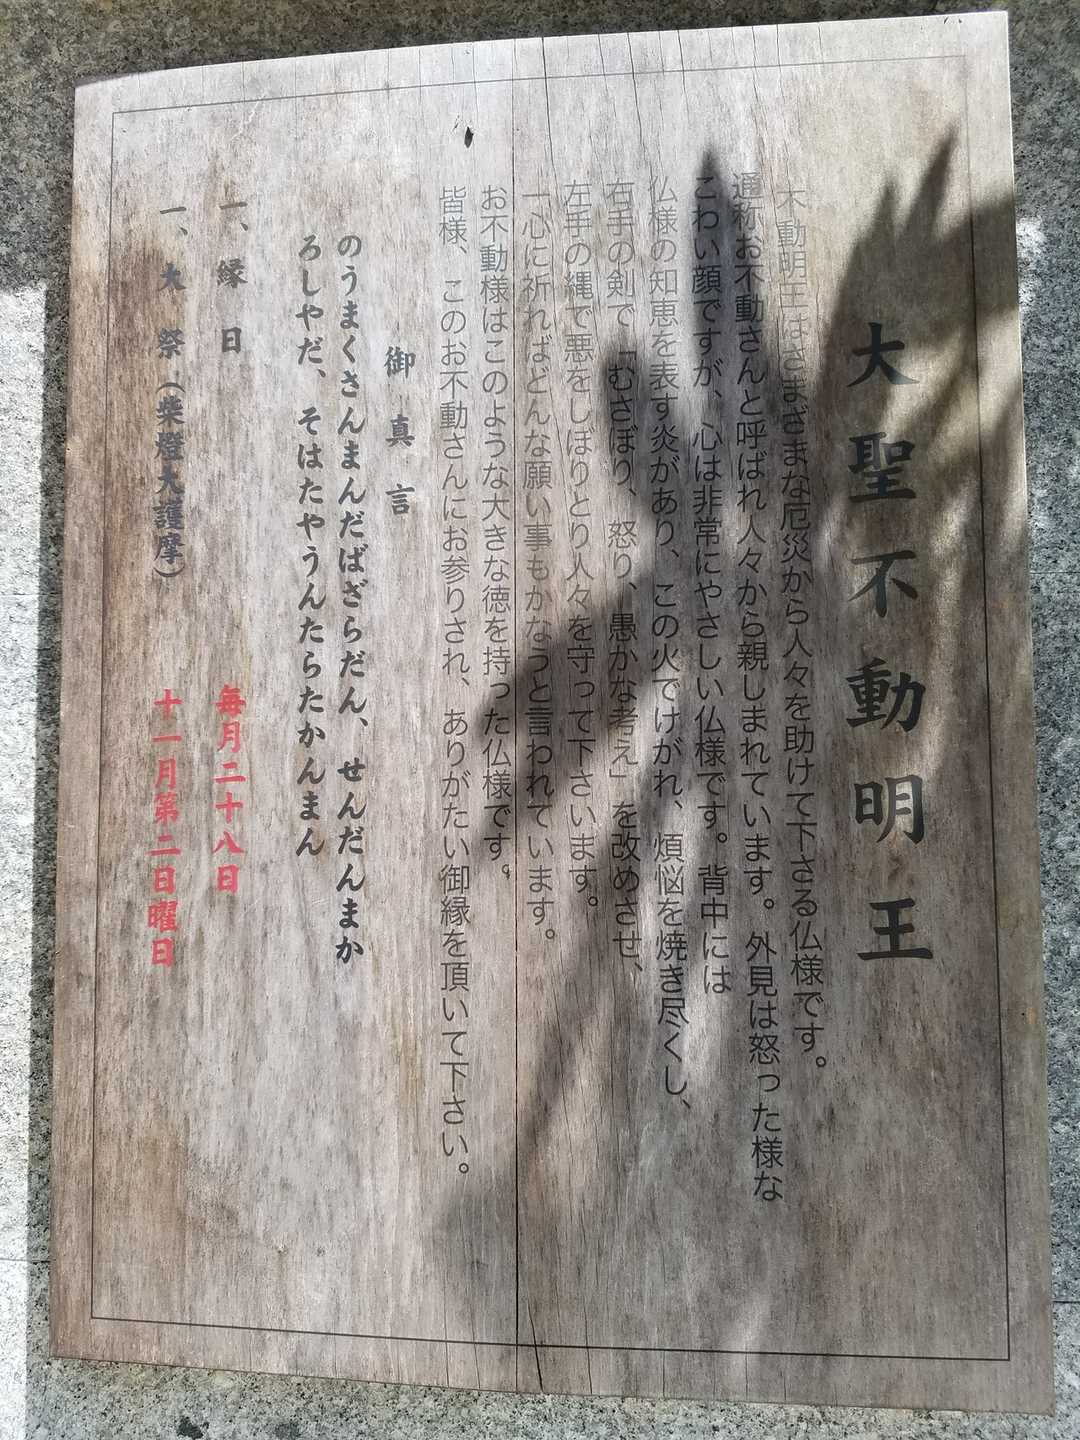 大聖不動明王
不動明王はさまざまな厄災から人々を助けて下さる仏様です。
通称お不動さんと呼ばれ人々から親しまれています。外見は怒った様な
こわい顔ですが、心は非常にやさしい仏様です。背中には
仏様の知恵を表す炎があり、この火でけがれ、煩悩を焼き尽くし、
右手の剣で「むさぼり、怒り、愚かな考え」を改めさせ、
左手の縄で悪をしばりとり人々を守って下さいます。
一心に祈ればどんな願い事もかなうと言われています。
お不動様はこのような大きな徳を持った仏様です。
皆様、このお不動さんにお参りされ、ありがたい御縁を頂いて下さい。
御真言
のうまくさんまんだばざらだん、せんだんまか
ろしやだ、そはたやうんたらたかんまん
一、縁日 毎月二十八日
一、大祭（柴燈大護摩） 十一月第二日曜日